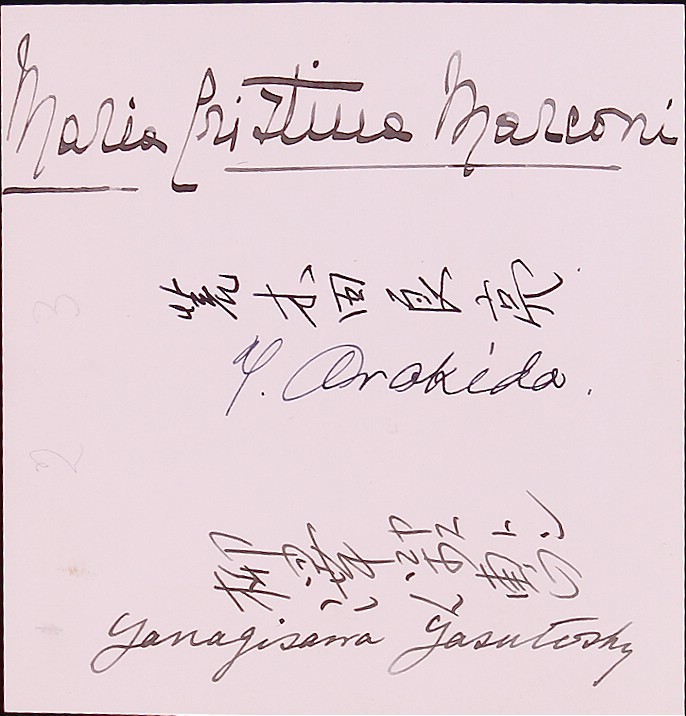 Maria Cristina Marconi
3
荒木田
Y. Arakida.
2
柳澤保惠
Yanagisawa Yasutoshy